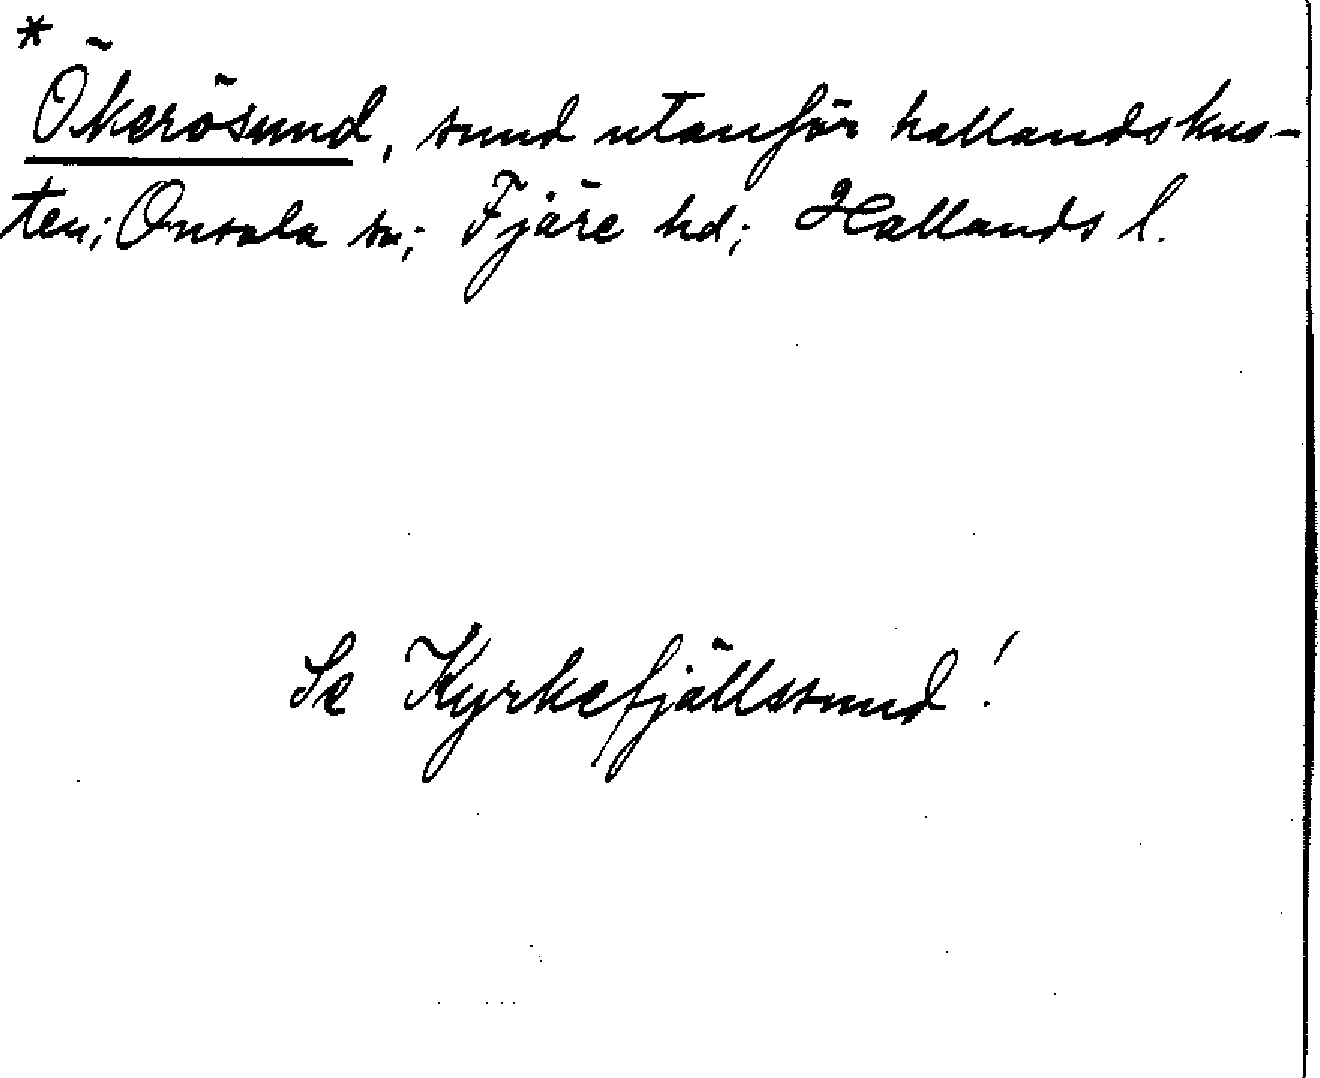 *
Ökerösund, sund utanför hallandskus-
ten; Onsala sn; Fjäre hd; Hallands l.
Se Kyrkefjällssund!